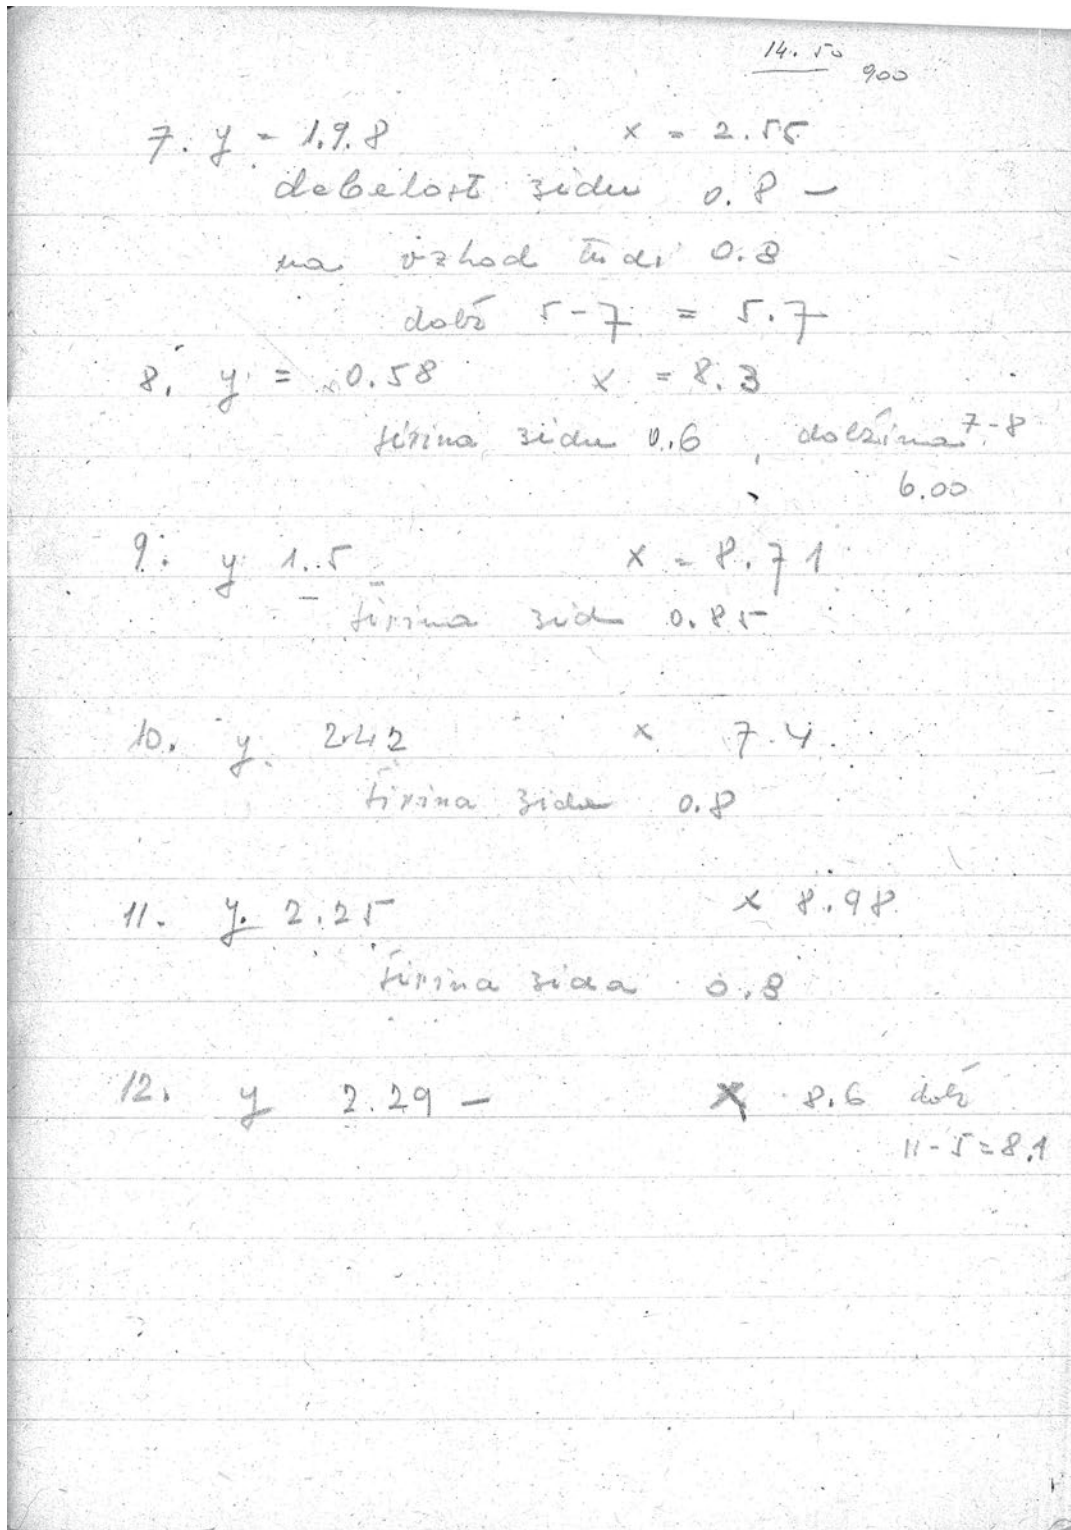 14.50
900
7. y = 1.9.8 x = 2.55
debelost zidu 0.8 –
na vzhod tudi 0.8
dolž 5-7 = 5.7
8. y = 0.58 x = 8.3
širina zidu 0.6, dolžina 7-8
6.00
9. y 1.5 x = 8.71
širina zidu 0.85
10. y 2.42 x 7.4
širina zidu 0.8
11. y. 2.25 x 8.98
širina zida 0.8
12. y 2.29 – x 8.6 dolž
11-5=8.1